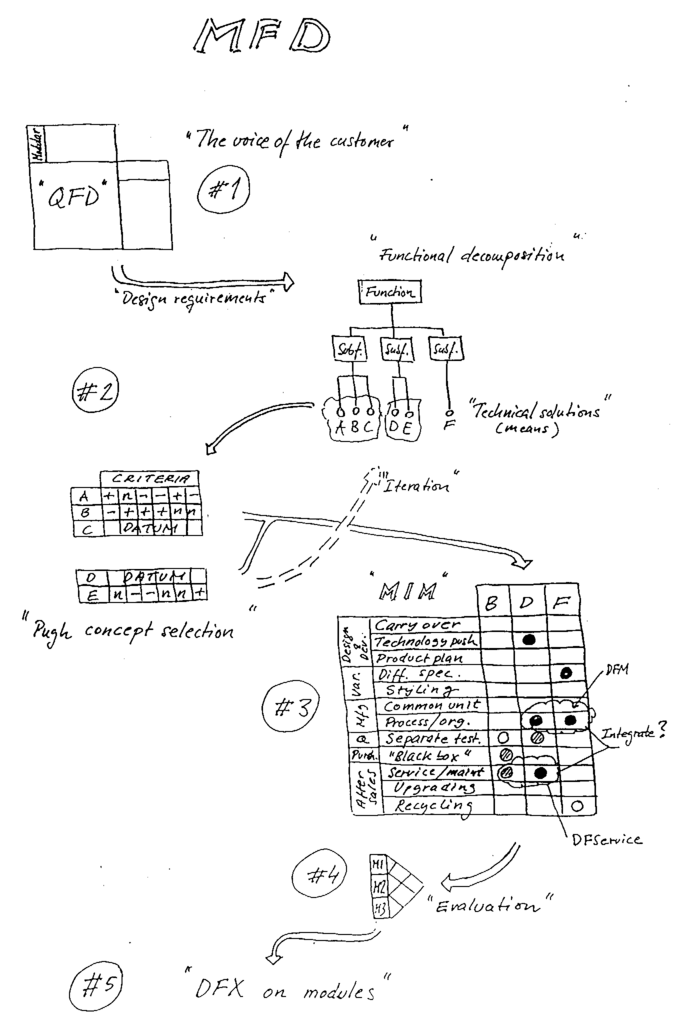 MFD
Modular
"The voice of the customer"
"QFD"
#1
"Functional decomposition"
"Design requirements"
Function
Subf. Subf. Subf.
#2
A B C D E F
"Technical solutions"
(means)
"Iteration"
CRITERIA
A + n - - + -
B - + + + n n
C DATUM
D DATUM
E n - - n n +
"Pugh concept selection"
"MIM"
B D F
Design & Dev.
Carry over
Technology push
Product plan
Var.
Diff. spec.
Styling
DFM
#3
Mfg
Common unit
Process/org.
Integrate?
Q
Separate test.
Purch.
"Black box"
After sales
Service/maint
Upgrading
Recycling
DFService
#4
M1
M2
M3
"Evaluation"
#5
"DFX on modules"